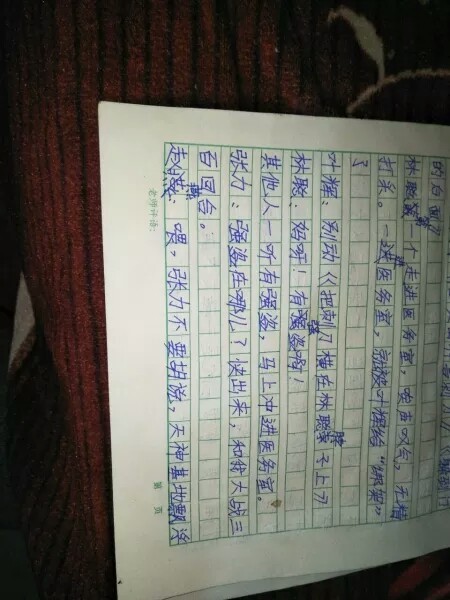 的白
林聪 个走进医务室，唉声叹气，无精
打采。一进医务室，就被叶辉给“绑架”
了
叶辉：别动《把刺刀横在林聪脖子上》
林聪：妈呀！有强盗啊！
其他人一听有强盗，马上冲进医务室。
张力：强盗在哪儿？快出来，和我大战三
百回合。
赵燕：喂，张力不要胡说，天神基地飘浮
老师评语：
第 页